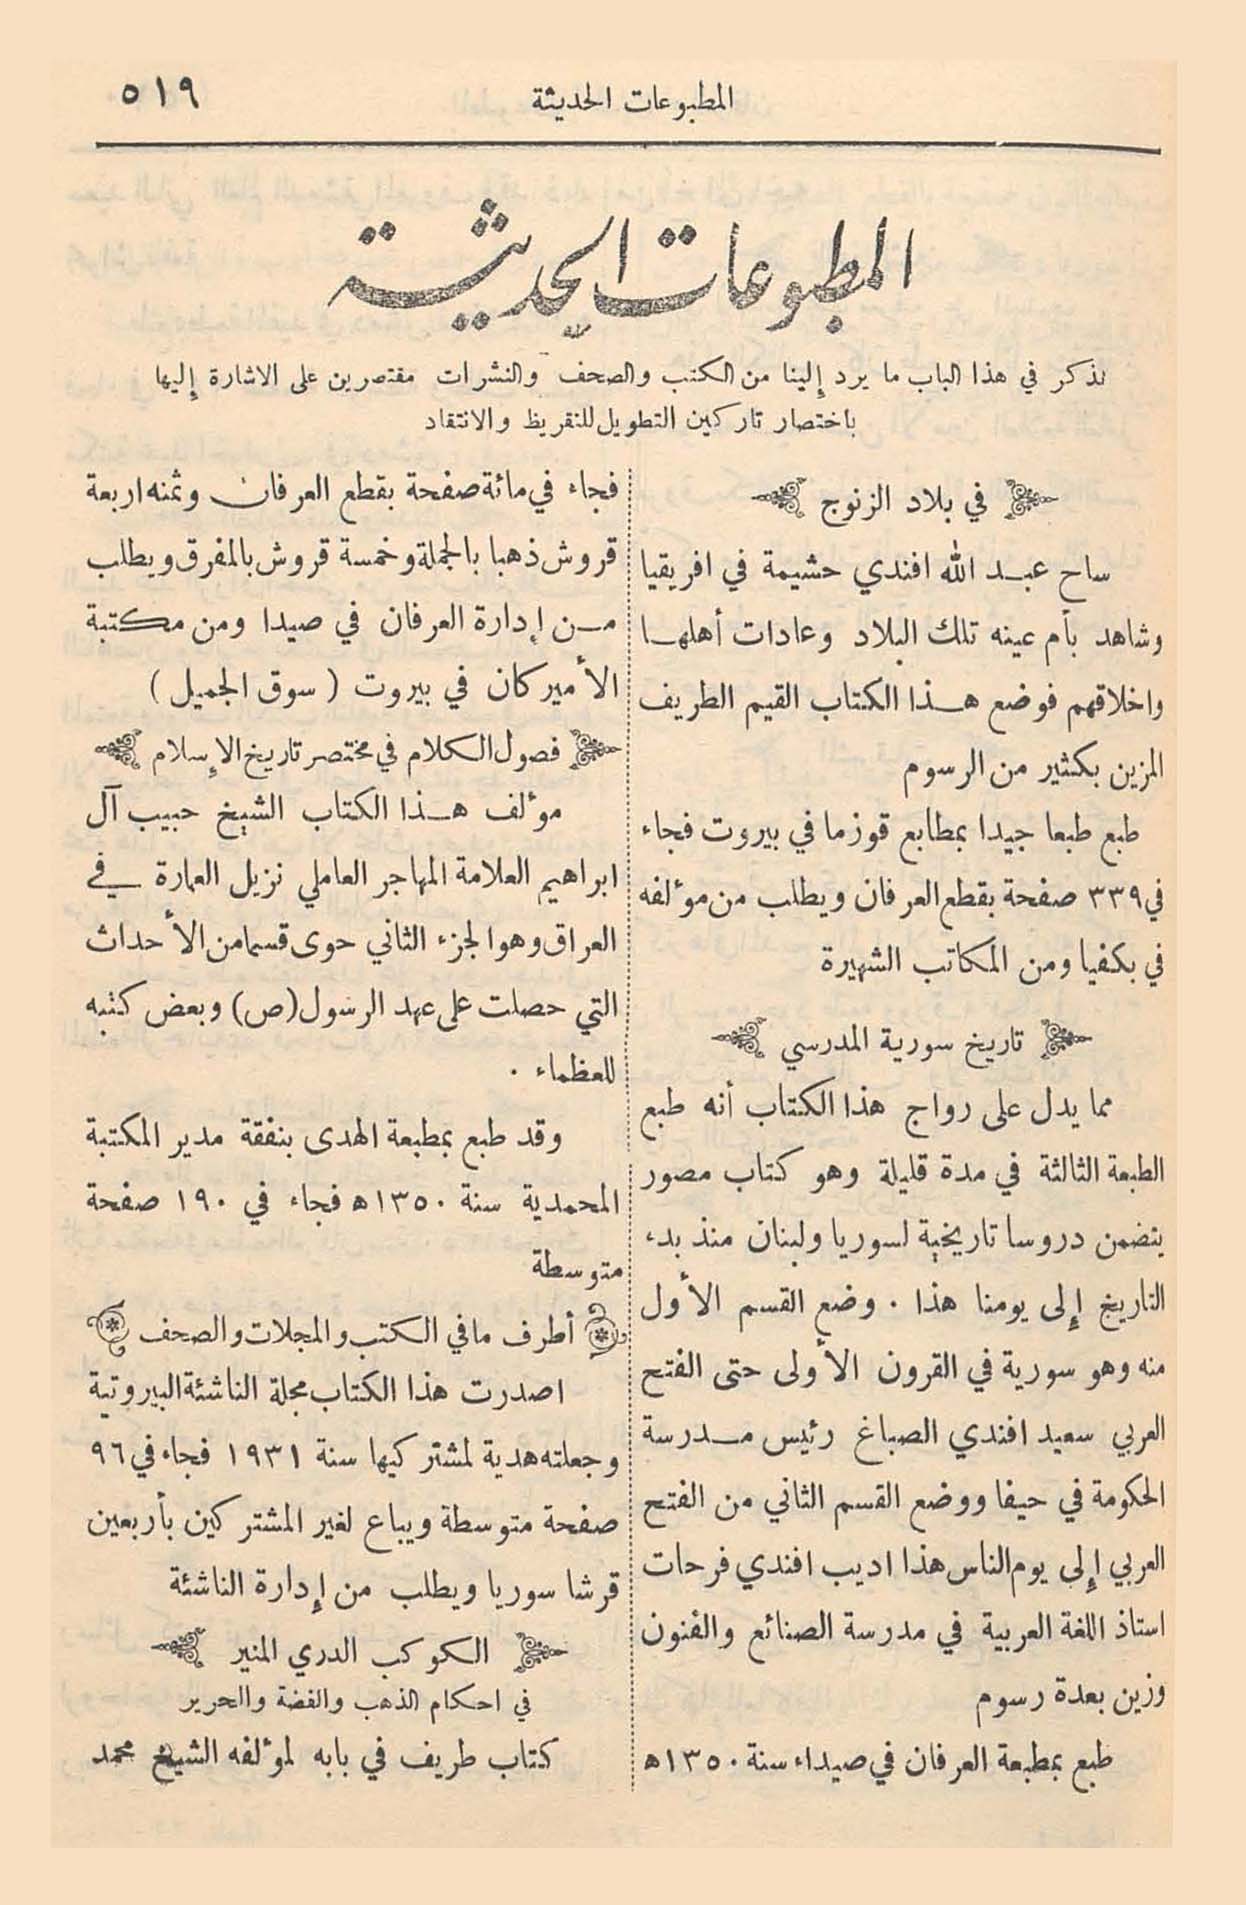 المطبوعات الحديثة
٥١٩
المطبوعات الحديثة
نذكر في هذا الباب ما يرد إلينا من الكتب والصحف والنشرات مقتصرين على الاشارة إليها
باختصار تاركين التطويل للنقريظ والانتقاد
في بلاد الزنوج
ساح عبد الله افندي حشيمة في افريقيا
وشاهد بأم عينه تلك البلاد وعادات أهلها
واخلاقهم فوضع هذا الكتاب القيم الطريف
المزين بكثير من الرسوم
طبع طبعا جيدا بمطابع قوزما في بيروت فجاء
في ٣٣٩ صفحة بقطع العرفان ويطلب من مؤلفه
في بكفيا ومن المكاتب الشهيرة
تاريخ سورية المدرسي
مما يدل على رواج هذا الكتاب أنه طبع
الطبعة الثالثة في مدة قليلة وهو كتاب مصور
يتضمن دروسا تاريخية لسوريا ولبنان منذ بدء
التاريخ إلى يومنا هذا . وضع القسم الأول
منه وهو سورية في القرون الأولى حتى الفتح
العربي سعيد افندي الصباغ رئيس مدرسة
الحكومة في حيفا ووضع القسم الثاني من الفتح
العربي إلى يوم الناس هذا اديب افندي فرحات
استاذ اللغة العربية في مدرسة الصنائع والفنون
وزين بعدة رسوم
طبع بمطبعة العرفان في صيداء سنة ١٣٥٠ه
فجاء في مائة صفحة بقطع العرفان وثمنه اربعة
قروش ذهبا بالجملة وخمسة قروش بالمفرق ويطلب
من إدارة العرفان في صيدا ومن مكتبة
الأميركان في بيروت ( سوق الجميل )
فصول الكلام في مختصر تاريخ الإسلام
مؤلف هذا الكتاب الشيخ حبيب آل
ابراهيم العلامة المهاجر العاملي نزيل العمارة في
العراق وهو الجزء الثاني حوى قسما من الأحداث
التي حصلت على عهد الرسول (ص) وبعض كتبه
للعظماء .
وقد طبع بمطبعة الهدى بنفقة مدير المكتبة
المحمدية سنة ١٣٥٠ه فجاء في ١٩٠ صفحة
متوسطة
أطرف ما في الكتب والمجلات والصحف
اصدرت هذا الكتاب مجلة الناشئة البيروتية
وجعلته هدية لمشتركيها سنة ١٩٣١ فجاء في ٩٦
صفحة متوسطة ويباع لغير المشتركين بأربعين
قرشا سوريا ويطلب من إدارة الناشئة
الكوكب الدري المنير
في احكام الذهب والفضة والحرير
كتاب طريف في بابه لمؤلفه الشيخ محمد